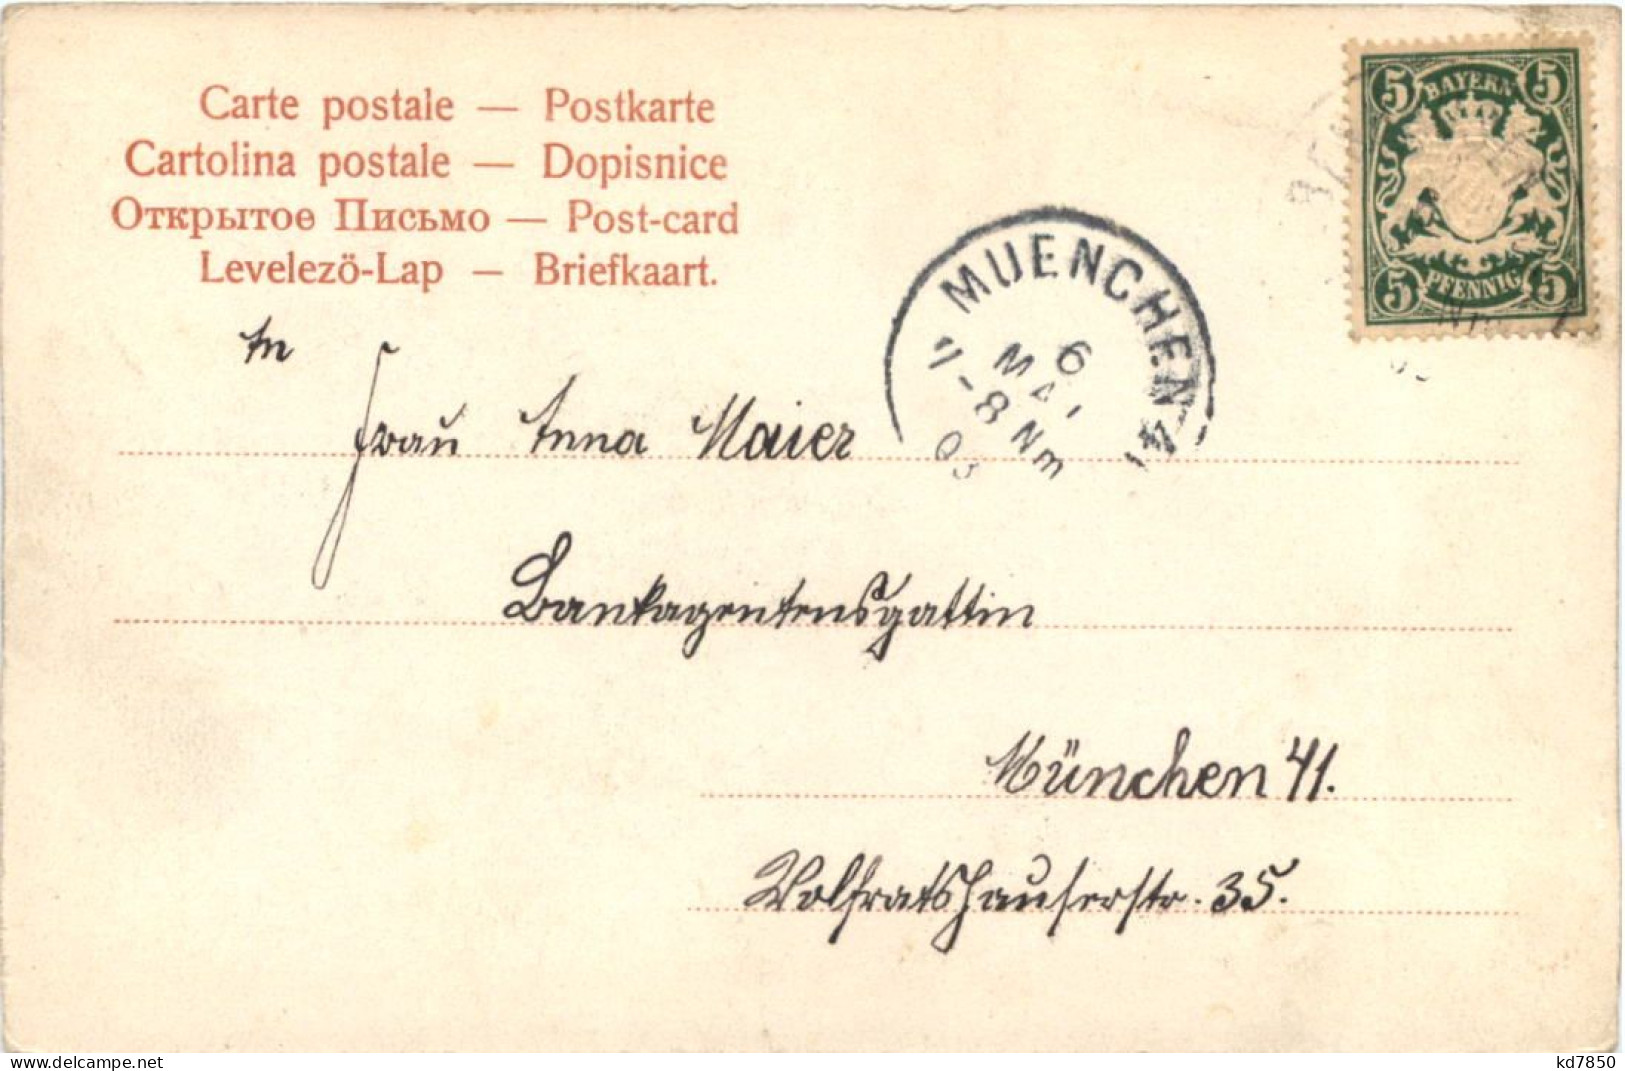 Carte postale — Postkarte
Cartolina postale — Dopisnice
Открытое Письмо — Post-card
Levelezö-Lap — Briefkaart.
BAYERN
5 5
5 5
PFENNIG
MUENCHEN
6
MAI
7-8 Nm
03
An
Frau Anna Maier
Bankagentensgattin
München 41.
Wolfratshauserstr. 35.
www.delcampe.net
kd7850